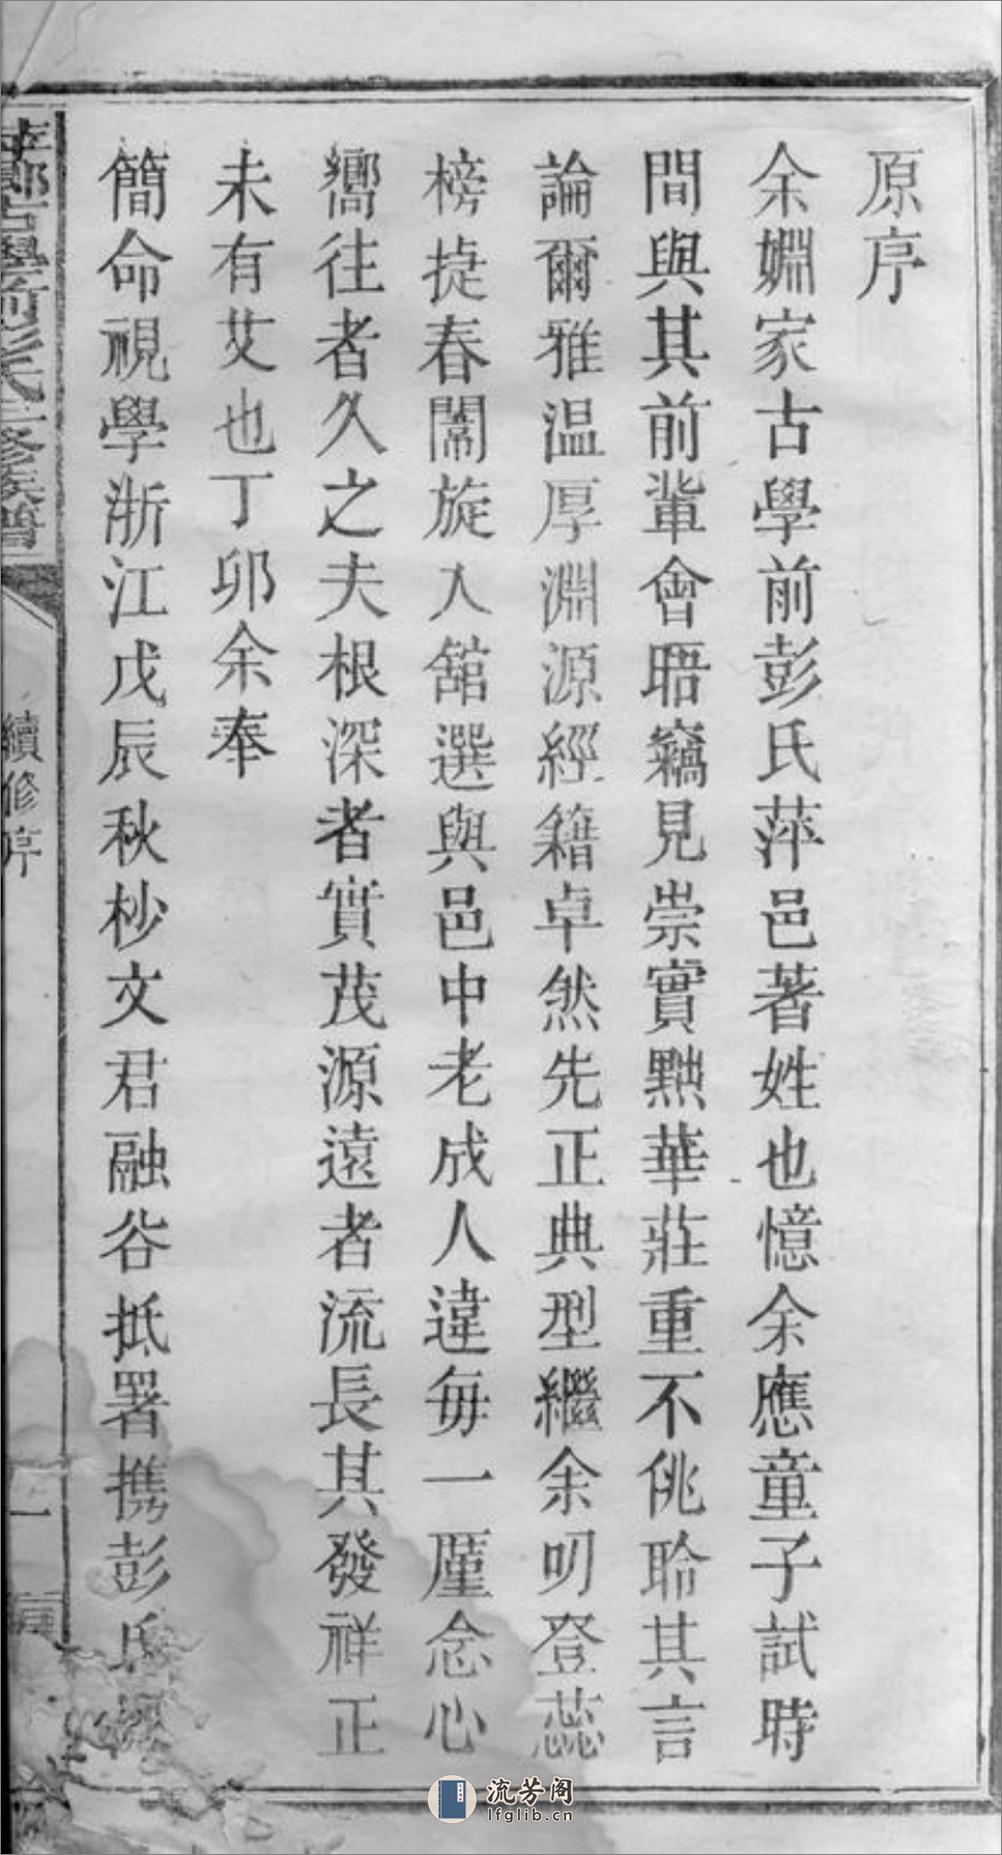 原序
余姻家古學前彭氏萍邑著姓也憶余應童子試時
間與其前輩會晤竊見崇實黜華莊重不佻聆其言
論爾雅温厚淵源經籍卓然先正典型繼余叨登蕊
榜捷春闈旋入舘選與邑中老成人違每一厪念心
嚮往者久之夫根深者實茂源遠者流長其發祥正
未有艾也丁卯余奉
簡命視學浙江戊辰秋杪文君融谷抵署携彭氏
古學前彭氏三修族譜
續修序
一
流芳阁
lfglib.cn